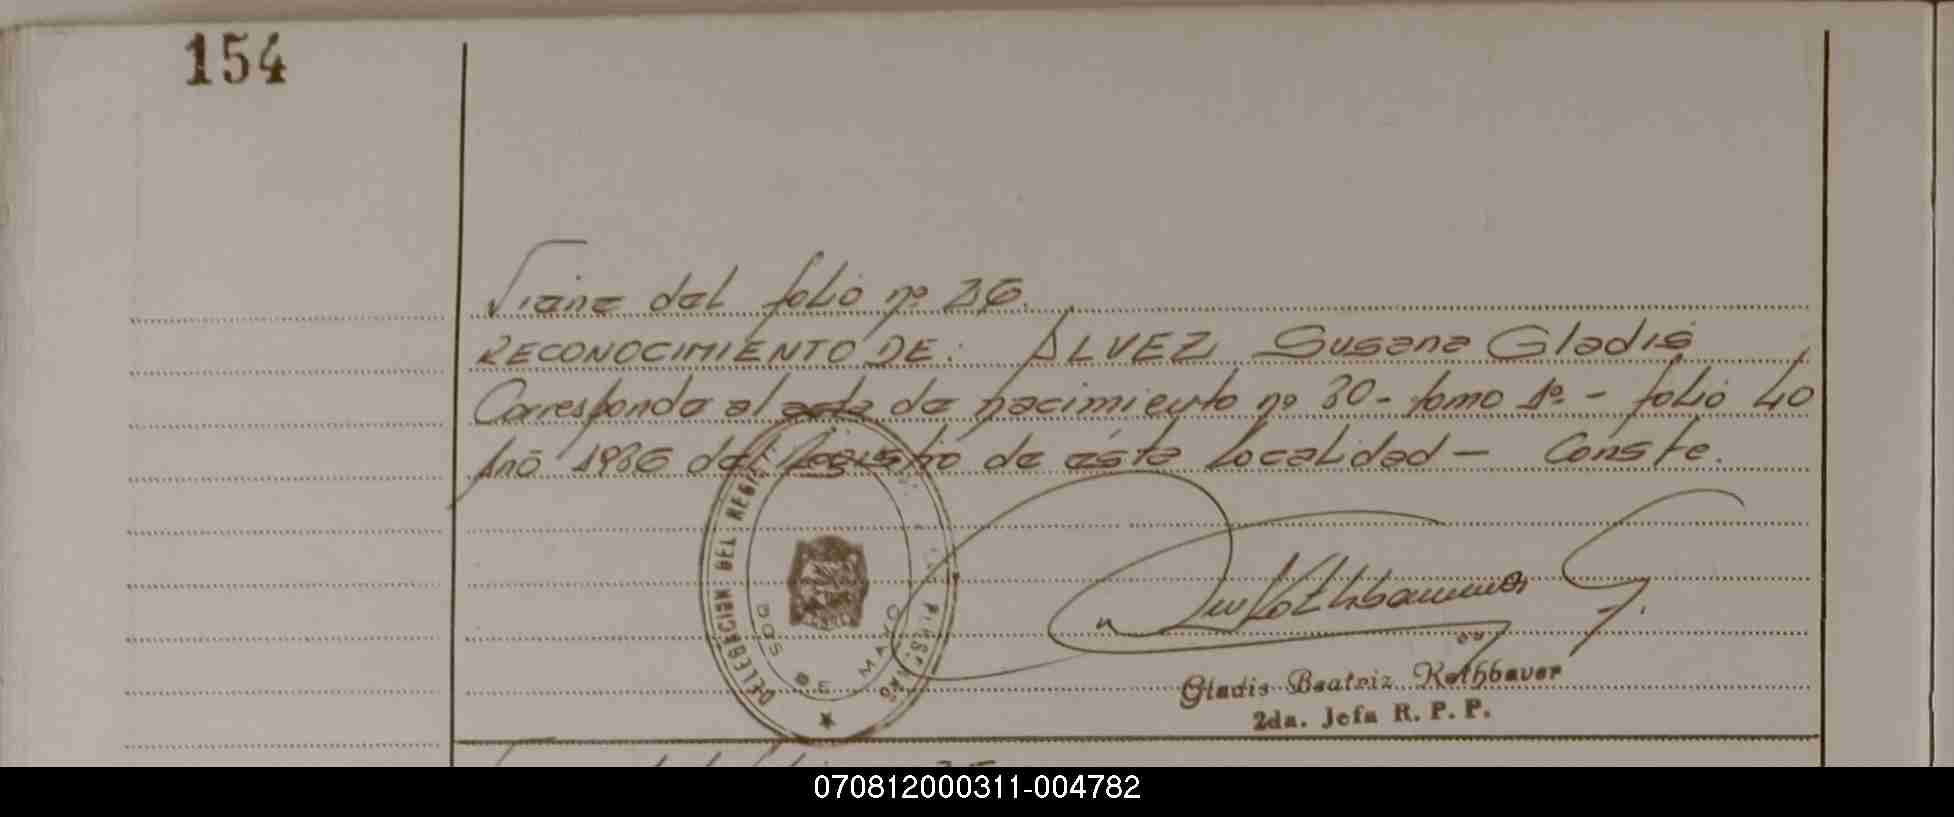 154
Viene del folio nº 36.
RECONOCIMIENTO DE: ALVEZ, Susana Gladis
Corresponde al acta de nacimiento nº 30 - tomo 1º - folio 40
Año 1986 del Registro de ésta localidad - Conste.
DELEGACION DEL REGIS
DOS DE MAYO
Gladis Beatriz Rothbauer
2da. Jefa R. P. P.
070812000311-004782